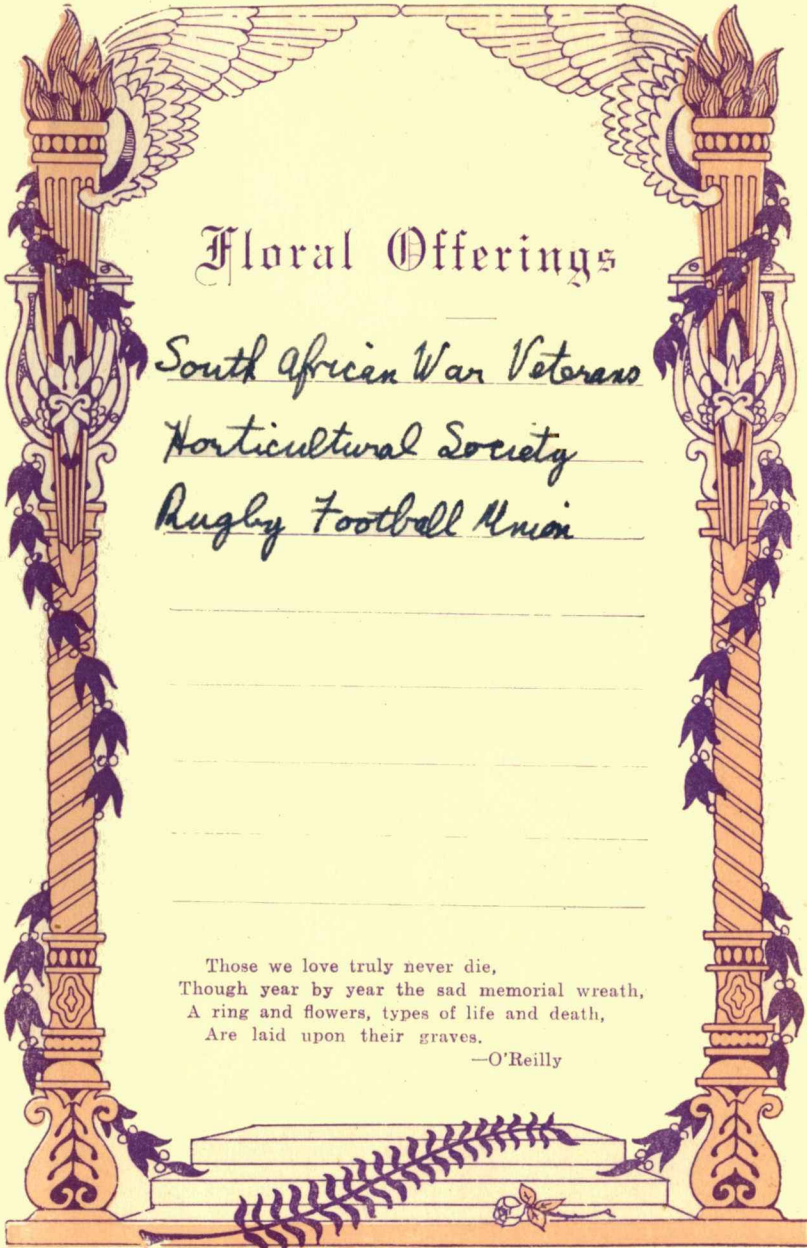 Floral Offerings
South African War Veterans
Horticultural Society
Rugby Football Union
Those we love truly never die,
Though year by year the sad memorial wreath,
A ring and flowers, types of life and death,
Are laid upon their graves.
—O'Reilly